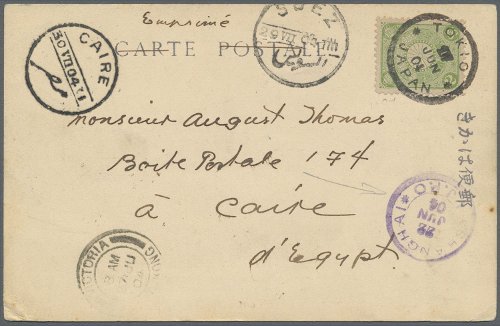 Emprimé
CARTE POSTALE
SUEZ
CAIRE
30 VII 04
TOKIO
JUN
04
JAPAN
Monsieur August Thomas
Boite Postale 174
à Caire
d'Egypt.
きかは便郵
SHANGHAI
22
JUN
04
VICTORIA